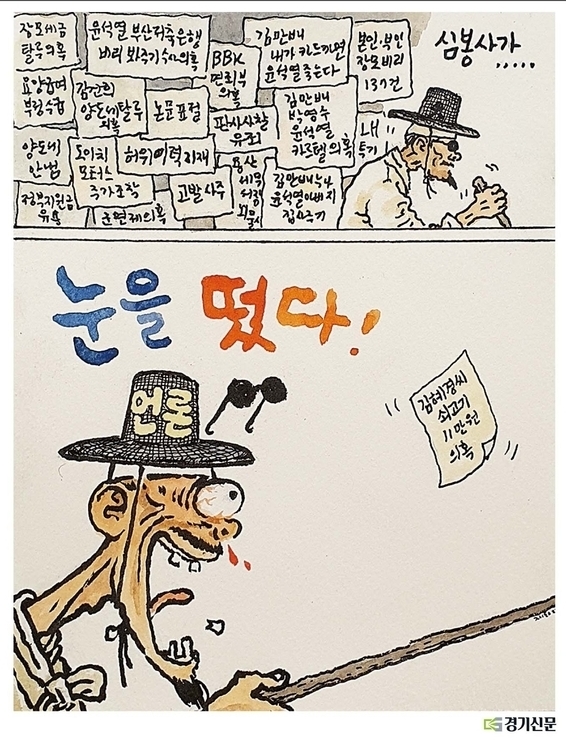 장모세금
탈루의혹
윤석열 부산저축은행
비리 봐주기수사의혹
BBK
면죄부
의혹
김만배
내가 카드까면
윤석열 죽는다
본인·부인
장모비리
137건
심봉사가.....
요양급여
부정수급
김건희
양도세탈루
의혹
논문표절
판사사찰
유죄
김만배
박영수
윤석열
카르텔의혹
내
특기
양도세
안냄
도이치
모터스
주가조작
허위이력기재
고발사주
용산
세무
서장
뇌물
김만배누나
윤석열아버지
집사주기
정부지원금
유용
눈을 떴다!
언론
김혜경씨
쇠고기
11만원
의혹
경기신문